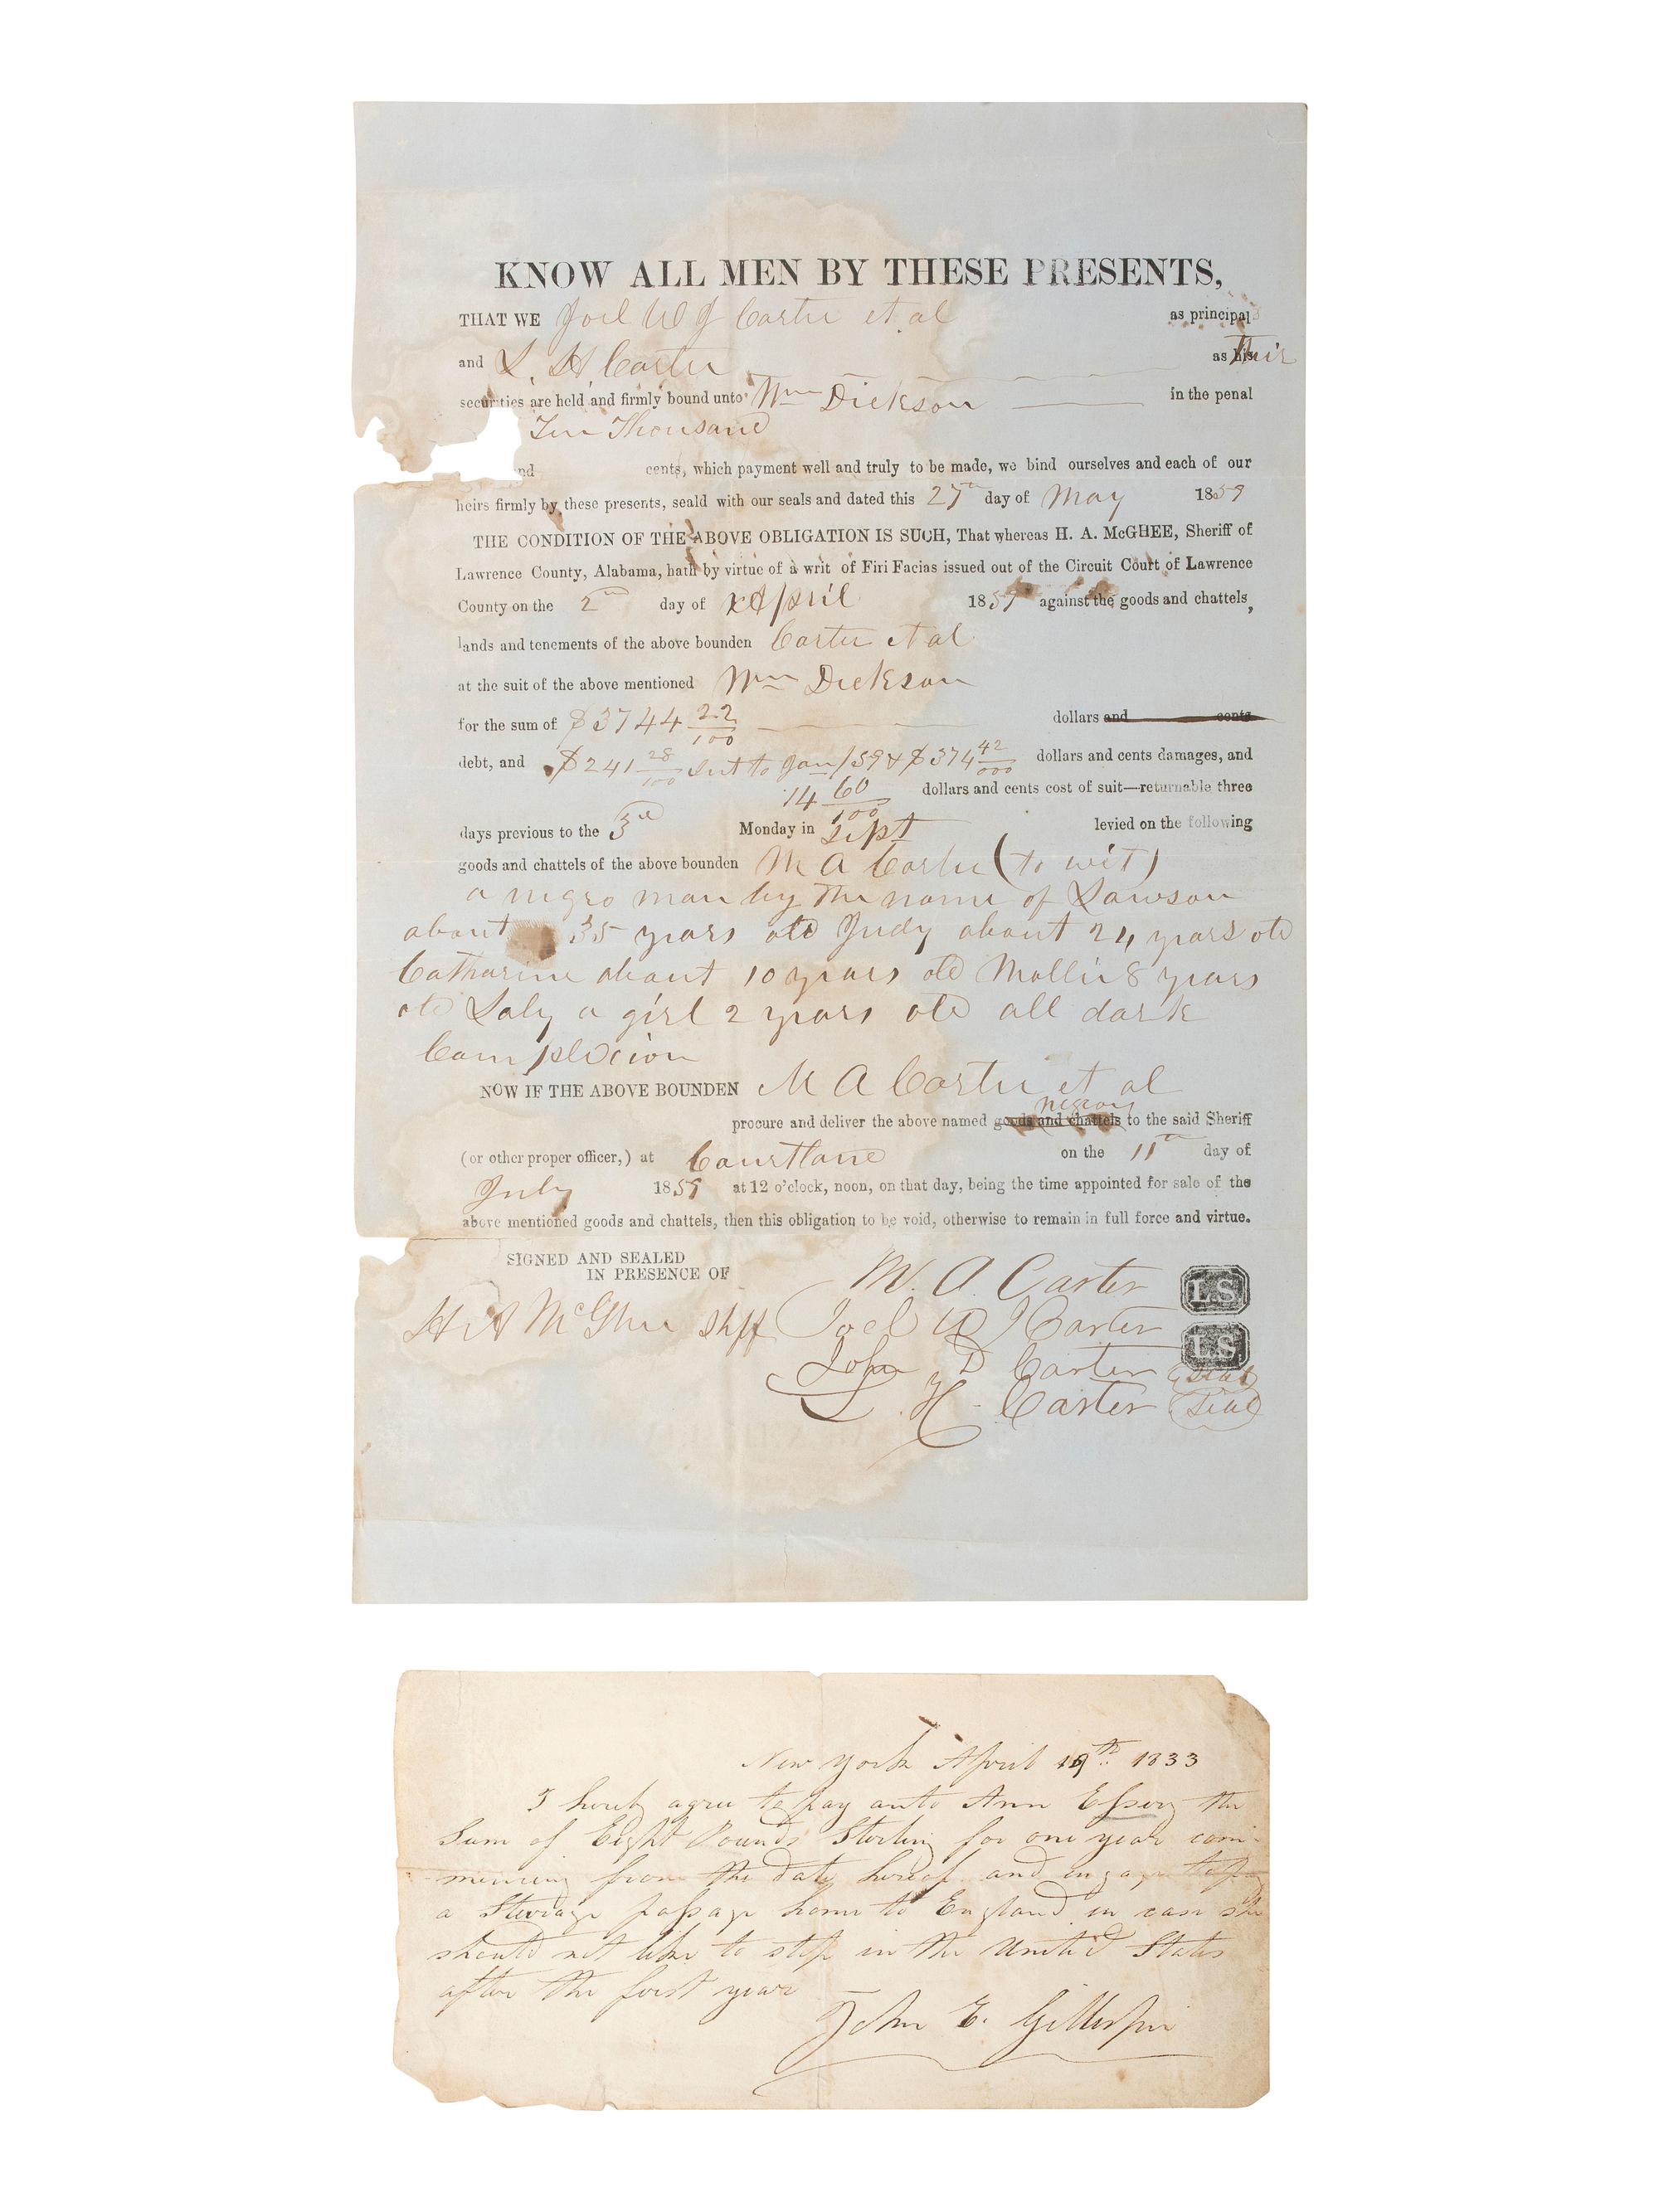 KNOW ALL MEN BY THESE PRESENTS,
THAT WE Joel W J Carter et al as principals
and L. H Carter as his their
securities are held and firmly bound unto Wm Dickson in the penal
Ten Thousand
nd cents, which payment well and truly to be made, we bind ourselves and each of our
heirs firmly by these presents, seald with our seals and dated this 27th day of May 1859
THE CONDITION OF THE ABOVE OBLIGATION IS SUCH, That whereas H. A. McGHEE, Sheriff of
Lawrence County, Alabama, hath by virtue of a writ of Firi Facias issued out of the Circuit Court of Lawrence
County on the 2nd day of April 1859 against the goods and chattels,
lands and tenements of the above bounden Carter et al
at the suit of the above mentioned Wm Dickson
for the sum of $3744 22/100 dollars and cents
debt, and $241 28/100 int to Jan/59 & $374 42/000 dollars and cents damages, and
14 60/100 dollars and cents cost of suit—returnable three
days previous to the 3rd Monday in Sept levied on the following
goods and chattels of the above bounden M A Carter (to wit)
a negro man by the name of Lawson
about 35 years old Judy about 24 years old
Catharine about 10 years old Mollie 8 years
old Laly a girl 2 years old all dark
Complexion
NOW IF THE ABOVE BOUNDEN M A Carter et al
negroes
procure and deliver the above named goods and chattels to the said Sheriff
(or other proper officer,) at Courtland on the 11th day of
July 1859 at 12 o'clock, noon, on that day, being the time appointed for sale of the
above mentioned goods and chattels, then this obligation to be void, otherwise to remain in full force and virtue.
SIGNED AND SEALED
IN PRESENCE OF
M. A. Carter LS
H A McGhee Shff Joel W J Carter LS
John D Carter Seal
L. H. Carter Seal
New York April 19th 1833
I hereby agree to pay unto Ann the
Sum of Eight Pounds Sterling for one year com-
mencing from the date hereof and engage to pay
a Steerage passage home to England in case she
should not like to stop in the United States
after the first year
John E. Gillespie